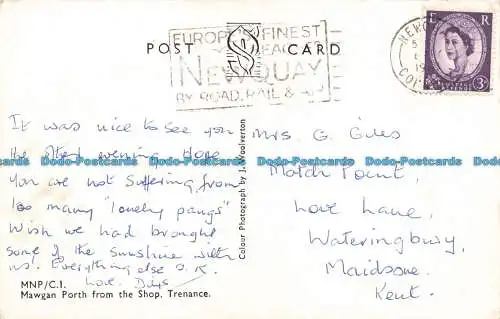 POST CARD
EUROPE'S FINEST
BEACHES
NEWQUAY
BY ROAD, RAIL &
E R
POSTAGE REVENUE
3D
It was nice to see you
the other evening. Hope
you are not suffering from
too many "lonely pangs"
Wish we had brought
some of the sunshine with
us. Everything else O.K.
Love.
Mrs. G. Giles
Match Point,
Love Lane,
Wateringbury,
Maidstone.
Kent.
Colour Photograph by J. Woolverton
MNP/C.1.
Mawgan Porth from the Shop, Trenance.
Dodo-Postcards Dodo-Postcards Dodo-Postcards Dodo-Postcards Dodo-Postcards